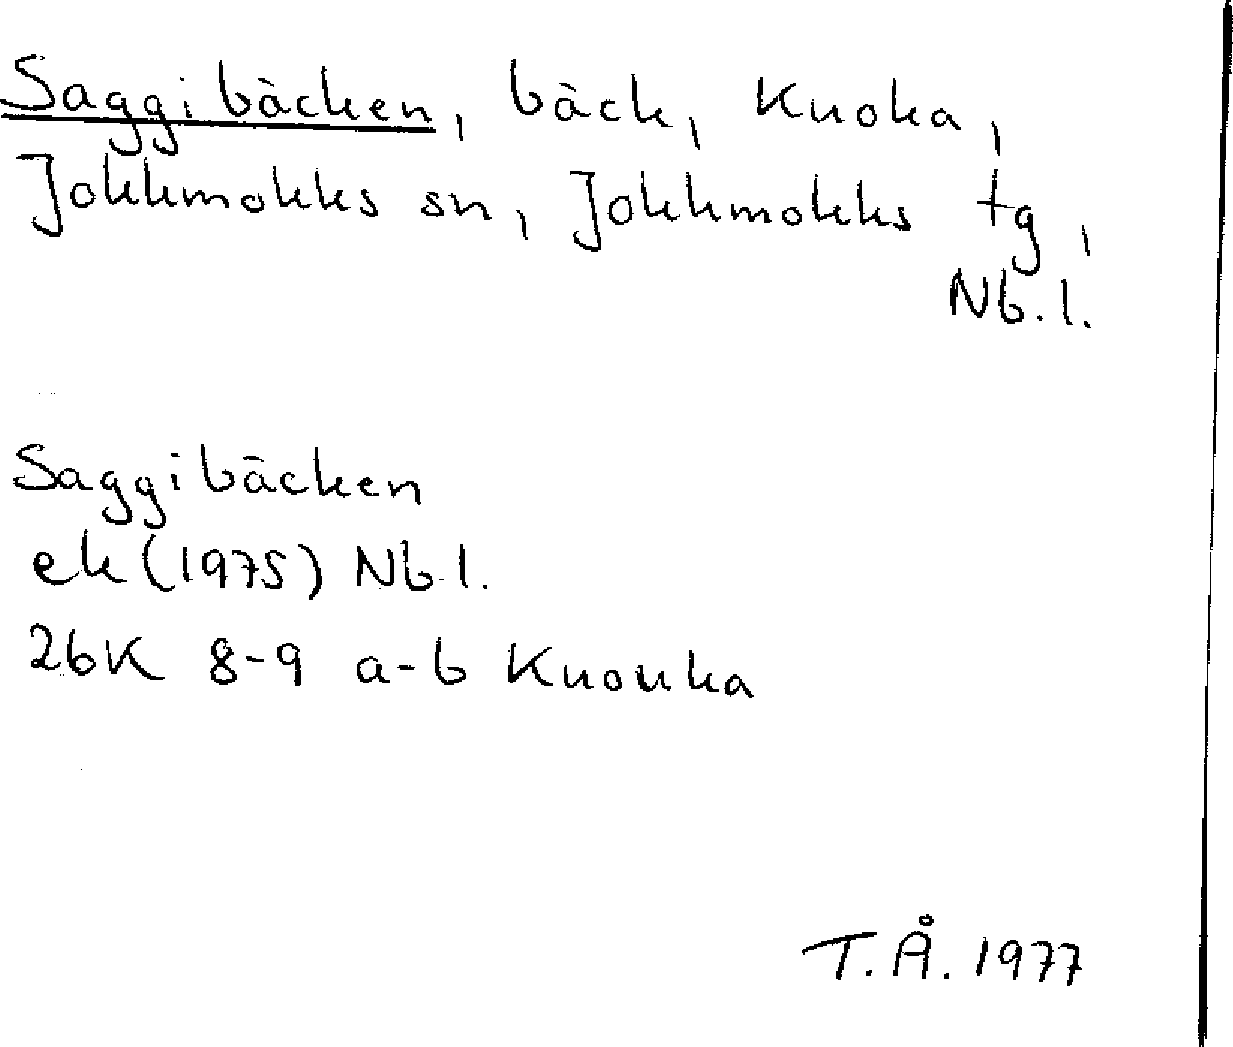 Saggibäcken, bäck, Knoka,
Jokkmokks sn, Jokkmokks tg,
Nb.l.
Saggibäcken
ek (1975) Nb.l.
26K 8-9 a-b Knouka
T.Å. 1977